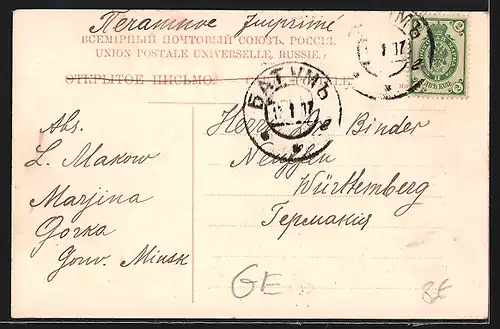 Печатное Imprimé
ВСЕМІРНЫЙ ПОЧТОВЫЙ СОЮЗЪ. РОССІЯ.
UNION POSTALE UNIVERSELLE, RUSSIE.
ОТКРЫТОЕ ПИСЬМО
БАТУМЪ
Abs.
L. Makow
Marjina
Gorka
Gouv. Minsk
Herrn Binder
Neuffen
Württemberg
Германия
GE